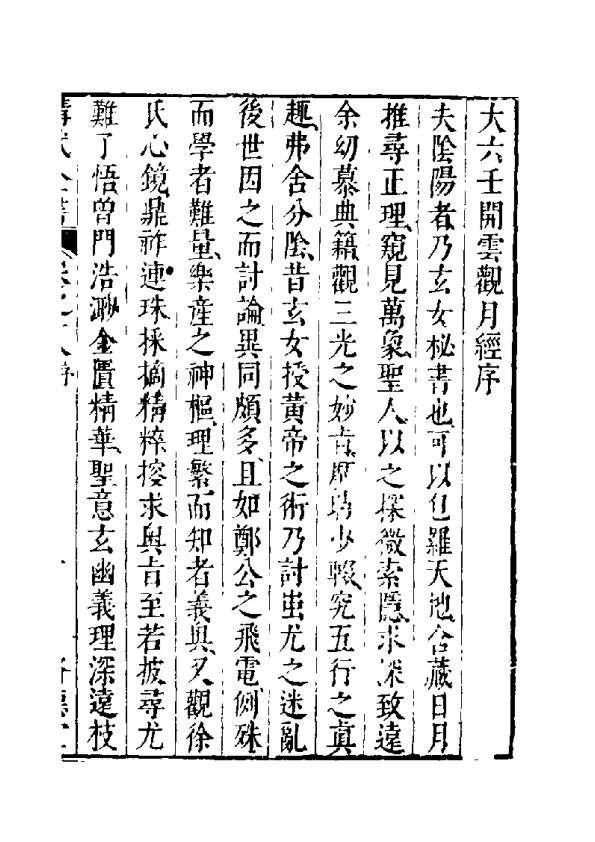 大六壬開雲觀月經序
夫陰陽者乃玄女秘書也可以包羅天地含藏日月
推尋正理窺見萬象聖人以之探微索隱求深致遠
余幼慕典籍觀三光之妙㫖歴塲少輟究五行之眞
趣弗舍分陰昔玄女授黃帝之術乃討蚩尤之迷亂
後世因之而討論異同頗多且如鄭公之飛電側殊
而學者難量樂産之神樞理繁而知者義與又觀徐
氏心鏡鼎祚連珠採摘精粹搜求奥㫖至若披尋尤
難了悟曽門浩渺金匱精華聖意玄幽義理深遠枝